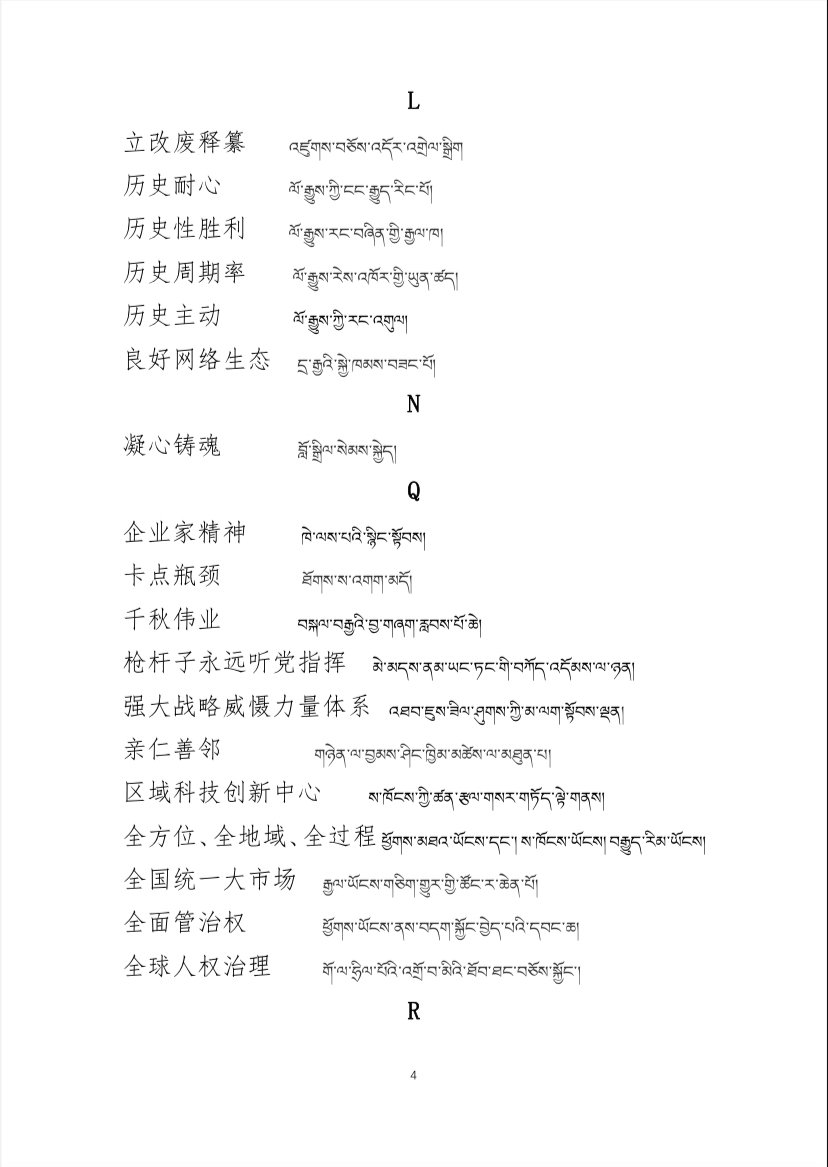 L
立改废释纂 འཛུགས་བཅོས་འདོར་འགྲེལ་སྒྲིག
历史耐心 ལོ་རྒྱུས་ཀྱི་ངང་རྒྱུད་རིང་པོ།
历史性胜利 ལོ་རྒྱུས་རང་བཞིན་གྱི་རྒྱལ་ཁ།
历史周期率 ལོ་རྒྱུས་རེས་འཁོར་གྱི་ཡུན་ཚད།
历史主动 ལོ་རྒྱུས་ཀྱི་རང་འགུལ།
良好网络生态 དྲ་རྒྱའི་སྐྱེ་ཁམས་བཟང་པོ།
N
凝心铸魂 བློ་སྒྲིལ་སེམས་སྐྱེད།
Q
企业家精神 ཁེ་ལས་པའི་སྙིང་སྟོབས།
卡点瓶颈 ཐོགས་ས་འགག་མདོ།
千秋伟业 བསྐལ་བརྒྱའི་བྱ་གཞག་རླབས་པོ་ཆེ།
枪杆子永远听党指挥 མེ་མདས་ནམ་ཡང་ཏང་གི་བཀོད་འདོམས་ལ་ཉན།
强大战略威慑力量体系 འཐབ་ཇུས་ཟིལ་ཤུགས་ཀྱི་མ་ལག་སྟོབས་ལྡན།
亲仁善邻 གཉེན་ལ་བྱམས་ཤིང་ཁྱིམ་མཚེས་ལ་མཐུན་པ།
区域科技创新中心 ས་ཁོངས་ཀྱི་ཚན་རྩལ་གསར་གཏོད་ལྟེ་གནས།
全方位、全地域、全过程 ཕྱོགས་མཐའ་ཡོངས་དང་། ས་ཁོངས་ཡོངས། བརྒྱུད་རིམ་ཡོངས།
全国统一大市场 རྒྱལ་ཡོངས་གཅིག་གྱུར་གྱི་ཚོང་ར་ཆེན་པོ།
全面管治权 ཕྱོགས་ཡོངས་ནས་བདག་སྐྱོང་བྱེད་པའི་དབང་ཆ།
全球人权治理 གོ་ལ་ཧྲིལ་པོའི་འགྲོ་བ་མིའི་ཐོབ་ཐང་བཅོས་སྐྱོང་།
R
4